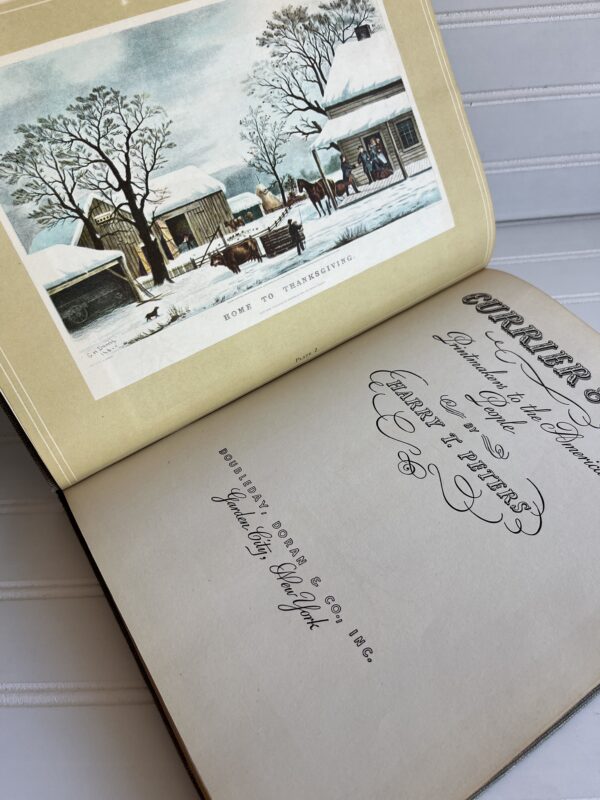 G.H. Durrie
HOME TO THANKSGIVING.
PLATE 2
CURRIER &
Printmakers to the America
People
BY
HARRY T. PETERS
DOUBLEDAY, DORAN & CO., INC.
Garden City, New York